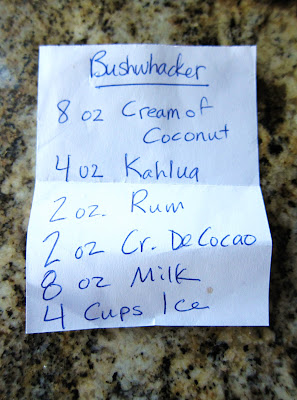 Bushwhacker
8 oz Cream of
Coconut
4 oz Kahlua
2 oz. Rum
2 oz Cr. De Cocao
8 oz Milk
4 Cups Ice